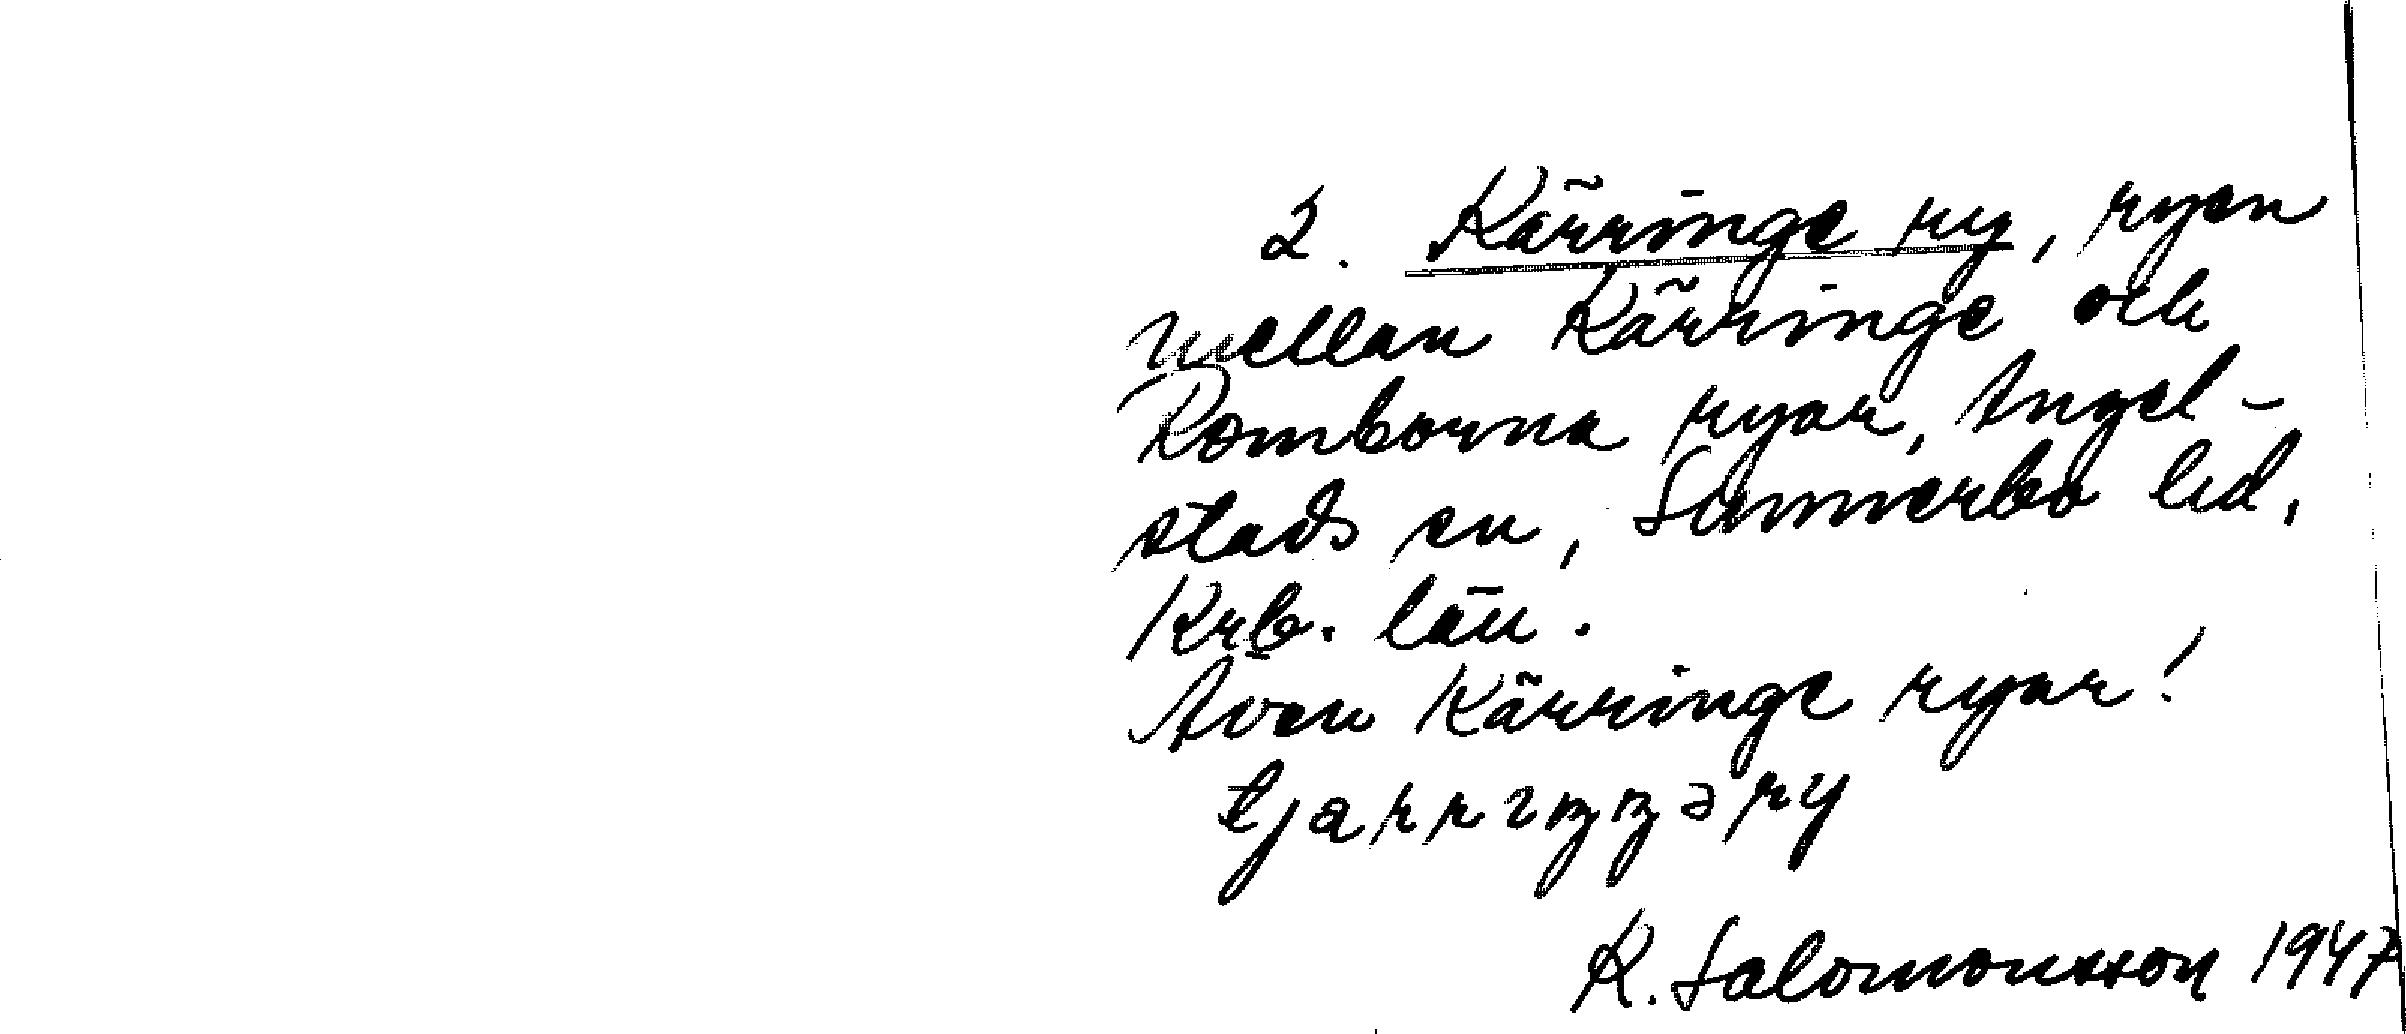 2. Kärringe ry, ryen
mellan Kärringe och
Romborna ryar, Angel-
stads sn, Sunnerbo hd,
Krb. län.
Även Kärringe ryar!
K. Salomonsson 1947